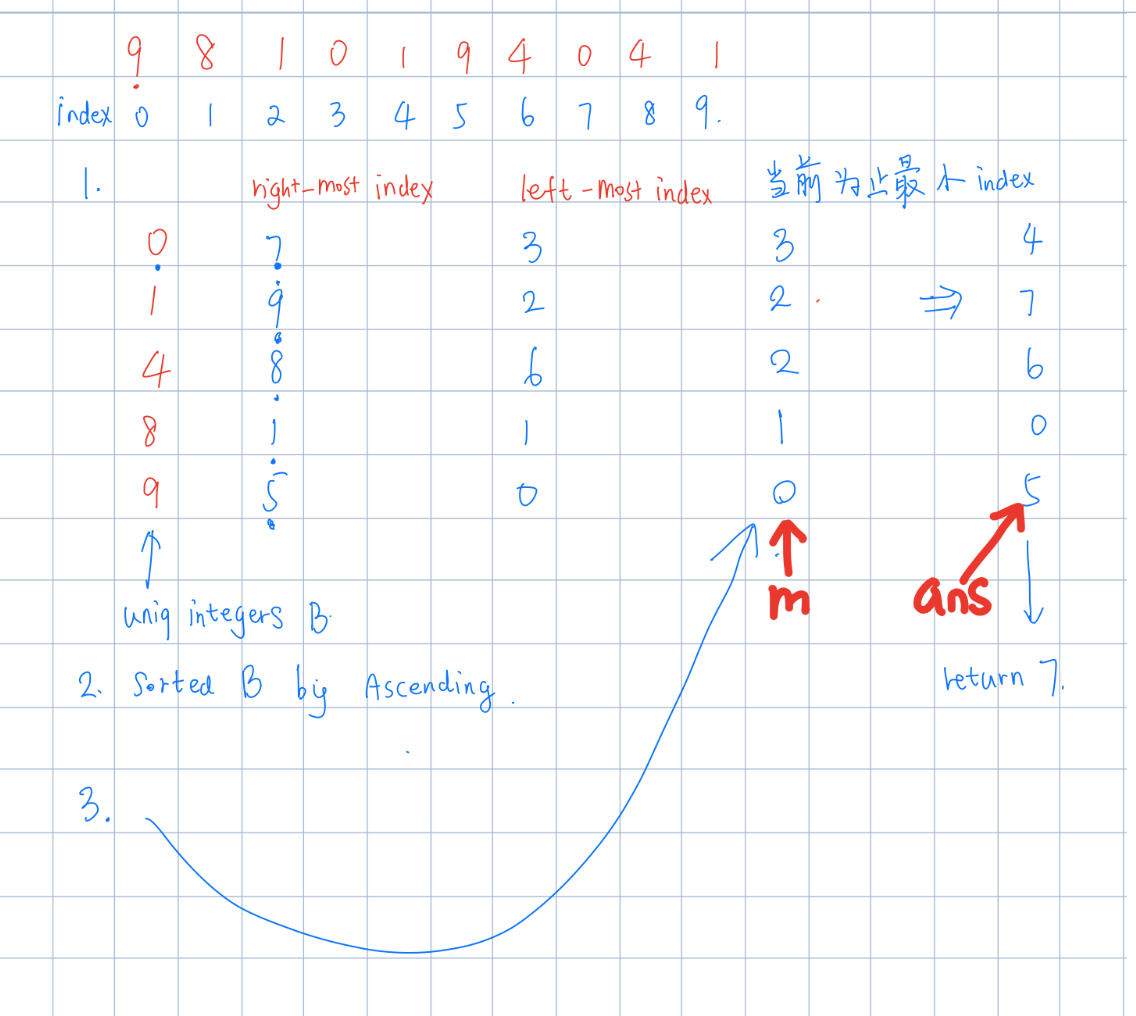 9 8 1 0 1 9 4 0 4 1
index 0 1 2 3 4 5 6 7 8 9.
1. right-most index left-most index 当前为止最小index
0 7 3 3 4
1 9 2 2 ⇒ 7
4 8 6 2 6
8 1 1 1 0
9 5 0 0 5
m ans
uniq integers B
2. Sorted B by Ascending.
return 7.
3.